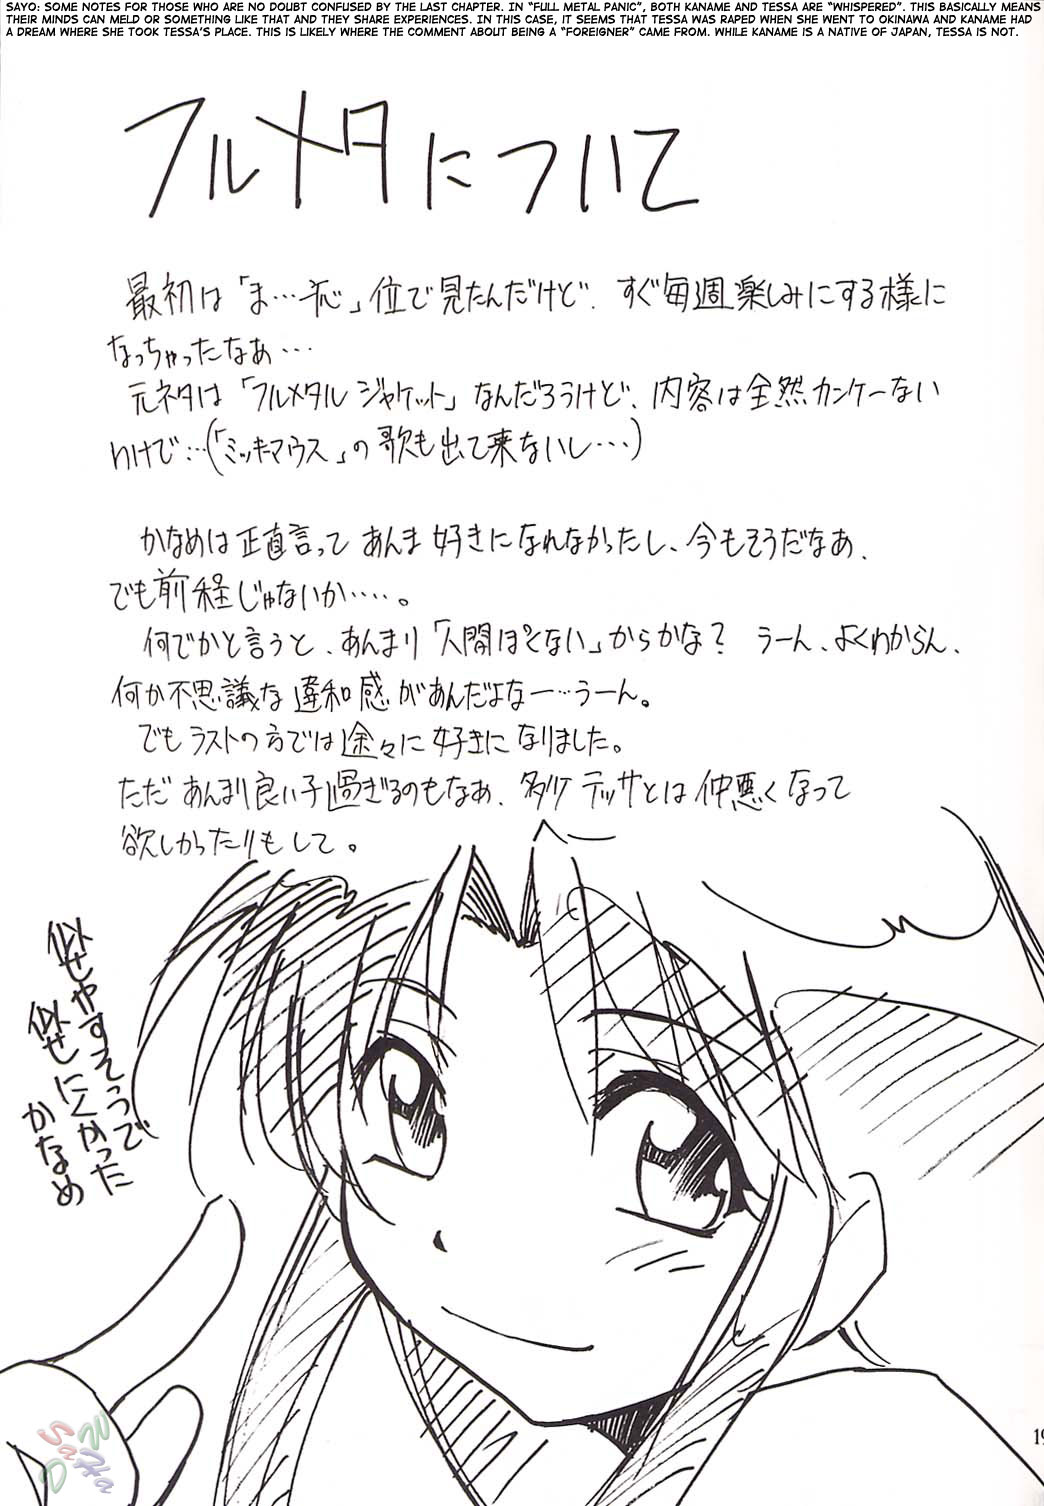 SAYO: SOME NOTES FOR THOSE WHO ARE NO DOUBT CONFUSED BY THE LAST CHAPTER. IN "FULL METAL PANIC", BOTH KANAME AND TESSA ARE "WHISPERED". THIS BASICALLY MEANS
THEIR MINDS CAN MELD OR SOMETHING LIKE THAT AND THEY SHARE EXPERIENCES. IN THIS CASE, IT SEEMS THAT TESSA WAS RAPED WHEN SHE WENT TO OKINAWA AND KANAME HAD
A DREAM WHERE SHE TOOK TESSA'S PLACE. THIS IS LIKELY WHERE THE COMMENT ABOUT BEING A "FOREIGNER" CAME FROM. WHILE KANAME IS A NATIVE OF JAPAN, TESSA IS NOT.
フルメタについて
最初は「ま…一応」位で見たんだけど、すぐ毎週楽しみにする様に
なっちゃったなあ…
元ネタは「フルメタルジャケット」なんだろうけど、内容は全然カンケーない
わけで…(「ミッキーマウス」の歌も出て来ないし…)
かなめは正直言ってあんま好きになれなかったし、今もそうだなあ、
でも前程じゃないか……。
何でかと言うと、あんまり「人間ぽくない」からかな？ うーん、よくわからん、
何か不思議な違和感があんだよなー…うーん。
でもラストの方では途々に好きになりました。
ただあんまり良い子過ぎるのもなぁ、多少テッサとは仲悪くなって
欲しかったりもして。
似せやすそうで
似せにくかった
かなめ
19